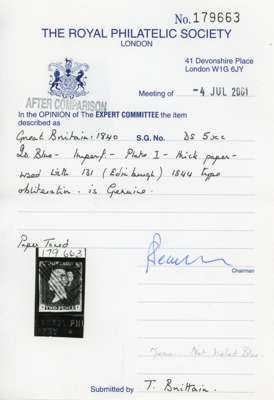 No. 179663
THE ROYAL PHILATELIC SOCIETY
LONDON
41 Devonshire Place
London W1G 6JY
Meeting of -4 JUL 2001
AFTER COMPARISON
In the OPINION of The EXPERT COMMITTEE the item
described as
Great Britain: 1840 S.G. No. DS 5xc
2d. Blue - Imperf. - Plate I - thick paper -
used with 131 (Edinburgh) 1844 type
obliteration. is Genuine.
Paper Toned
179 663
Chairman
Not Violet Blue.
Submitted by T. Brittain.